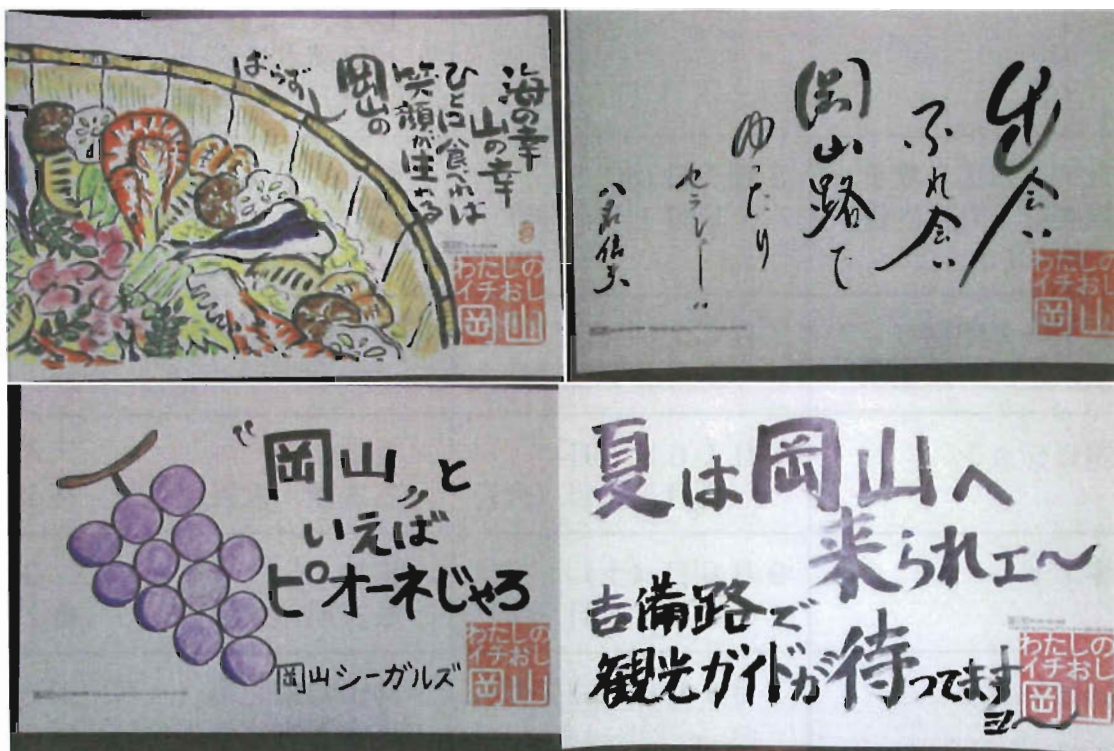 海の幸
山の幸
ひとは食べれば
笑顔が生まれる
岡山の
ばらずし
わたしの
イチおし
岡山
出会い
ふれ会い
岡山路で
ゆったり
セラピー
わたしの
イチおし
岡山
"岡山"と
いえば
ピオーネじゃろ
岡山シーガルズ
わたしの
イチおし
岡山
夏は岡山へ
来られエ〜
吉備路で
観光ガイドが待ってます
ヨ〜
わたしの
イチおし
岡山